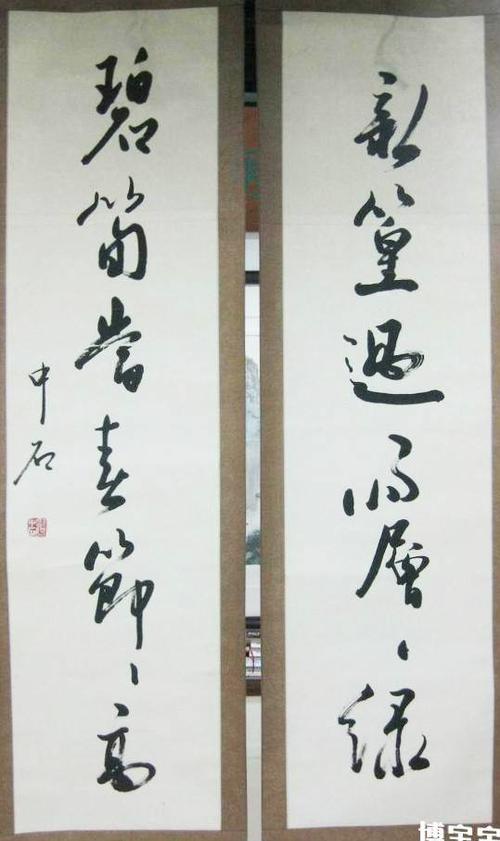 新篁過雨層〻綠
碧筍當春節〻高
中石
博宝